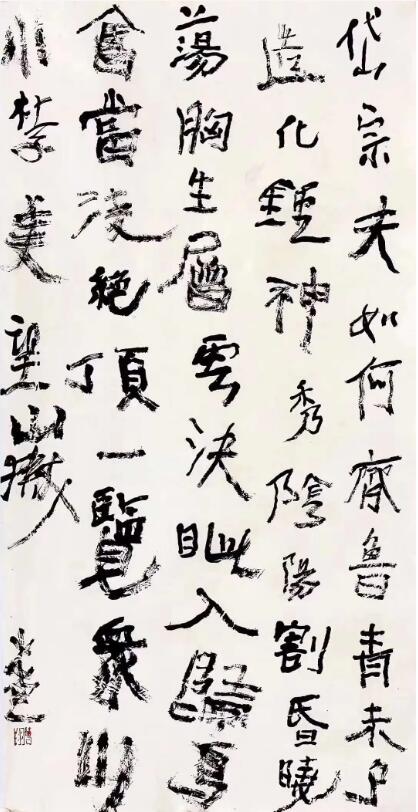 岱宗夫如何齊魯青未了
造化鍾神秀陰陽割昏曉
蕩胸生層雲決眦入歸鳥
會當淩絕頂一覽衆山
小杜子美望嶽